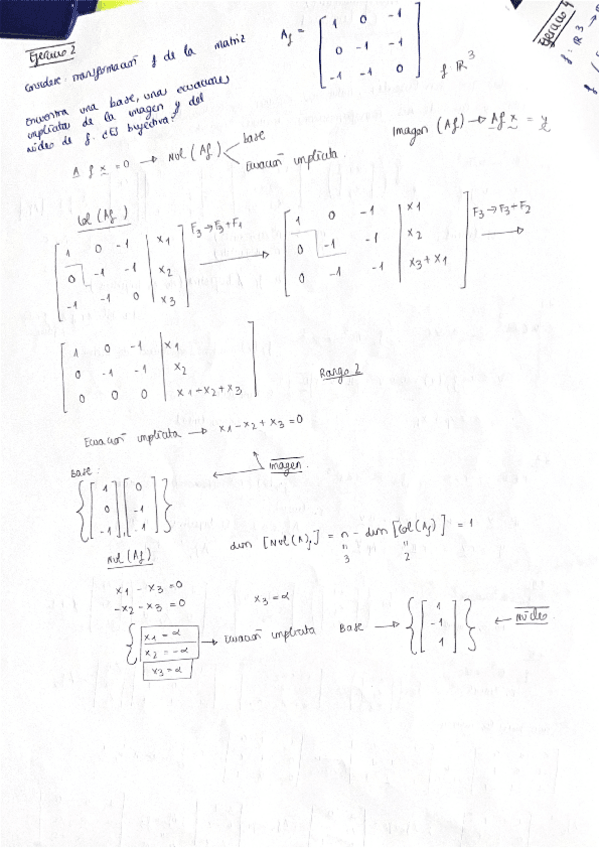 Ejercicio 2
Considere transformación f de la matriz
A_f = [ 1 0 -1
0 -1 -1
-1 -1 0 ]
f: ℝ³
Ejercicio 4
f: ℝ³ →
Encuentra una base, unas ecuaciones
implícitas de la imagen y del
núcleo de f. ¿Es biyectiva?
A_f x = 0 → Nul (A_f) < base
Ecuación implícita.
Imagen (A_f) → A_f x = y
Col (A_f)
[ 1 0 -1 | x1
0 -1 -1 | x2
-1 -1 0 | x3 ]
F3→F3+F1
[ 1 0 -1 | x1
0 -1 -1 | x2
0 -1 -1 | x3 + x1 ]
F3→F3-F2
[ 1 0 -1 | x1
0 -1 -1 | x2
0 0 0 | x1-x2+x3 ]
Rango 2
Ecuación implícita → x1-x2+x3=0
Base:
{ [ 1 0 -1 ], [ 0 -1 -1 ] }
← Imagen.
Nul (A_f)
dim [Nul(A_f)] = n - dim [Col(A_f)] = 1
3 2
x1 - x3 = 0
-x2 - x3 = 0
x3 = α
{ x1 = α
x2 = -α
x3 = α
→ Ecuación implícita
Base → { [ 1 -1 1 ] } ← núcleo.